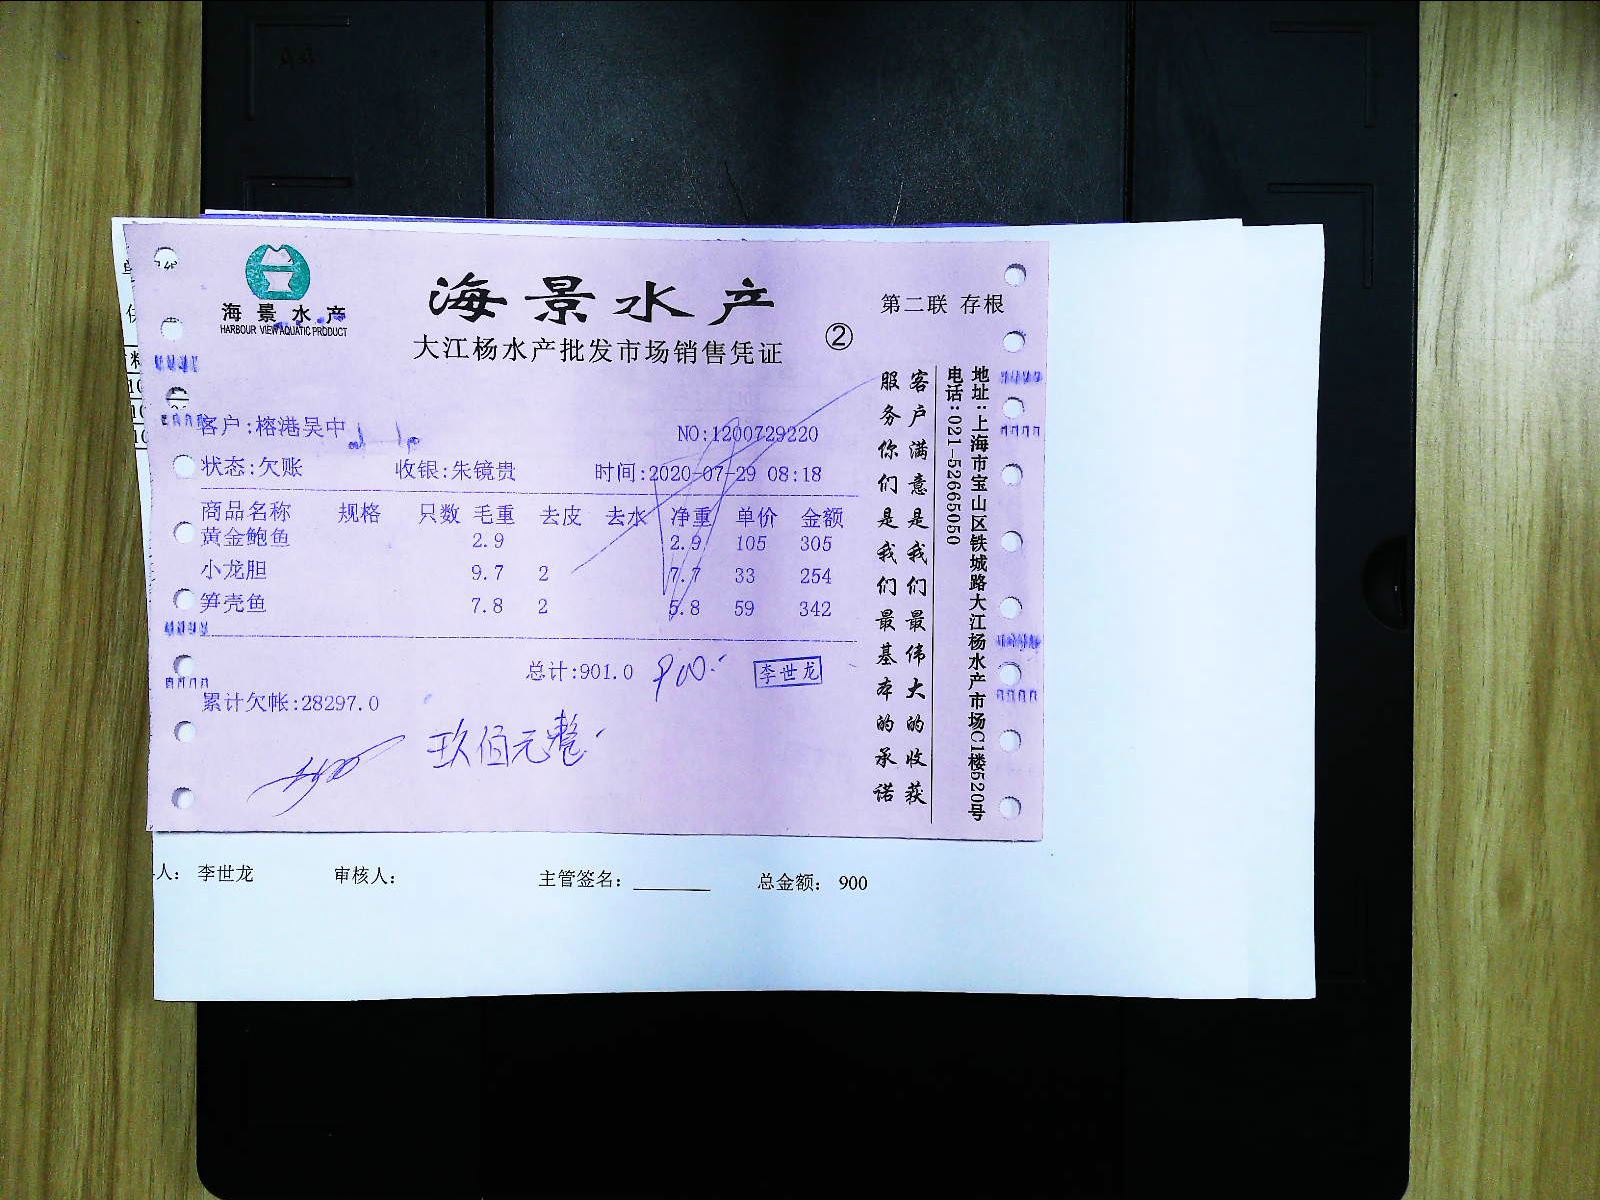 海景水产
HARBOUR VIEW AQUATIC PRODUCT
海景水产
大江杨水产批发市场销售凭证
②
第二联 存根
客户:榕港吴中
NO:1200729220
状态:欠账 收银:朱镜贵 时间:2020-07-29 08:18
商品名称 规格 只数 毛重 去皮 去水 净重 单价 金额
黄金鲍鱼 2.9 2.9 105 305
小龙胆 9.7 2 7.7 33 254
笋壳鱼 7.8 2 5.8 59 342
总计:901.0 900.
李世龙
累计欠帐:28297.0
玖佰元整
客户满意是我们最伟大的收获
服务你们是我们最基本的承诺
地址:上海市宝山区铁城路大江杨水产市场C1楼520号
电话:021-52665050
人: 李世龙 审核人: 主管签名: 总金额: 900